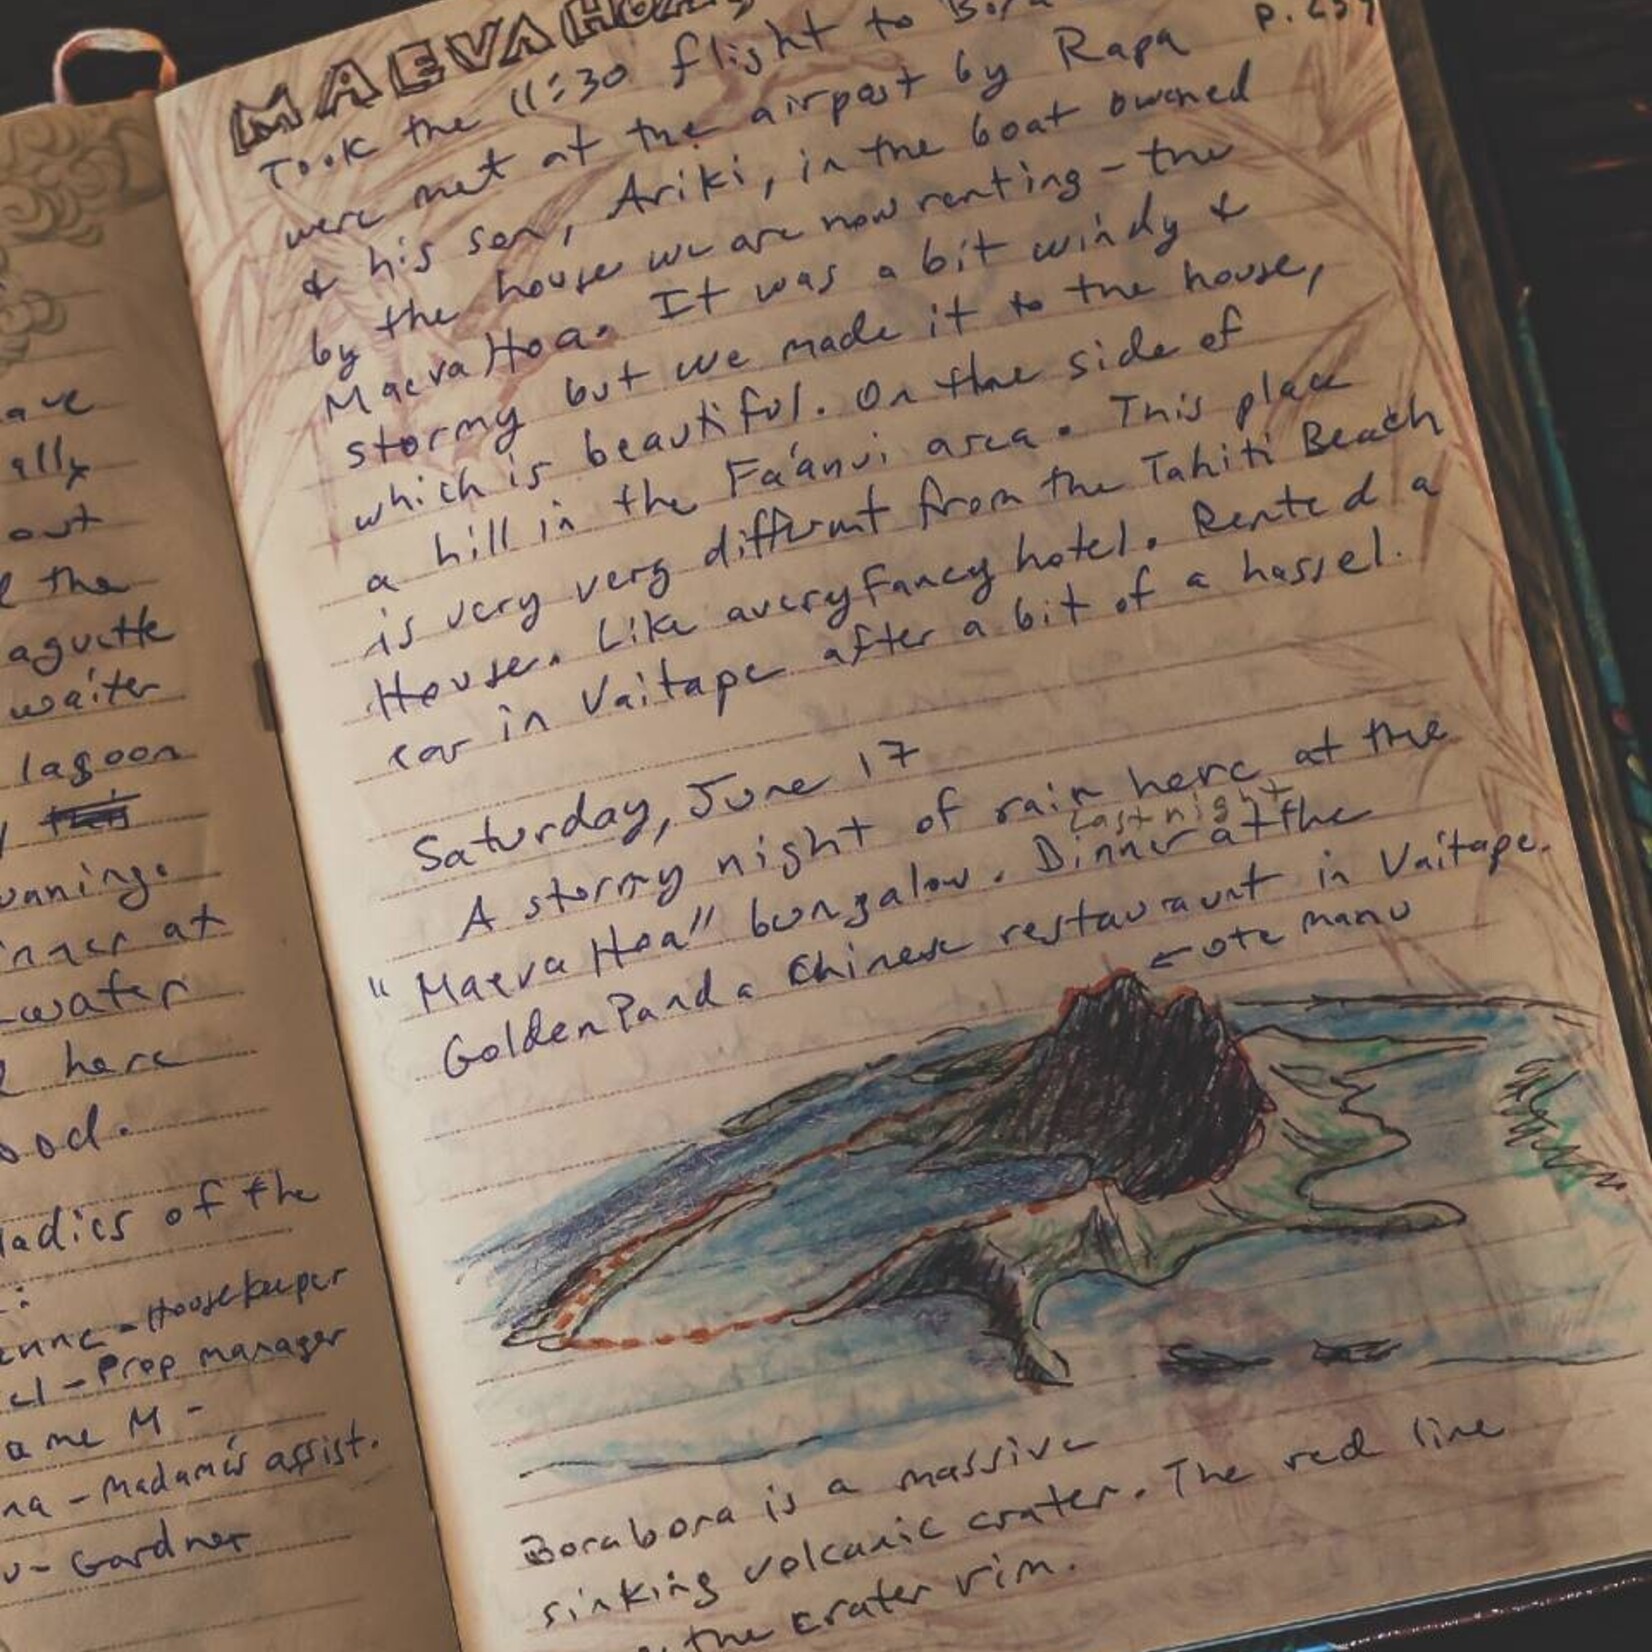 ave
ally
out
the
aguette
waiter
lagoon
unning.
inner at
water
here
ood.
ladies of the
enne - Housekeeper
el - Prop manager
ame M -
na - Madame's assist.
u - Gardner
MAEVA HOA
p. 259
Took the 11:30 flight to Bora
were met at the airport by Rapa
& his son, Ariki, in the boat owned
by the house we are now renting - the
Maeva Hoa. It was a bit windy &
stormy but we made it to the house,
which is beautiful. On the side of
a hill in the Fa'anui area. This place
is very very different from the Tahiti Beach
House. Like a very fancy hotel. Rented a
car in Vaitape after a bit of a hassel.
Saturday, June 17
A stormy night of rain here at the
last night
"Maeva Hoa" bungalow. Dinner at the
Golden Panda Chinese restauraunt in Vaitape.
← Ote manu
Bora bora is a massive
sinking volcanic crater. The red line
the crater rim.